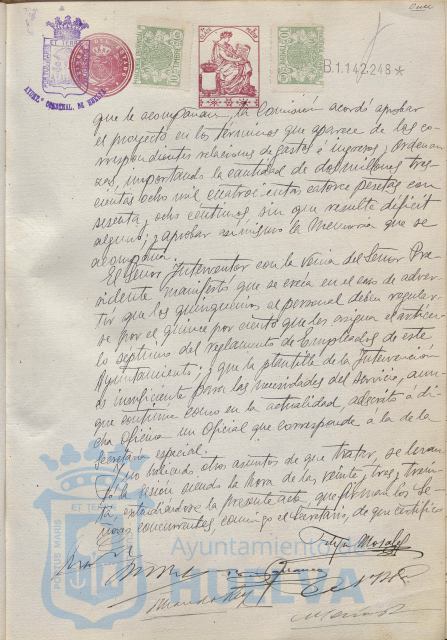 B.1.142.248*
que le acompañan, la Comisión acordó aprobar
el proyecto en los términos que aparece de las co-
rrespondientes relaciones de gastos é ingresos, y Ordenan-
zas, importando la cantidad de dos millones tres-
cientas ocho mil cuatrocientas catorce pesetas con
sesenta y ocho centimos, sin que resulte déficit
alguno; y aprobar asi mismo la Memoria que se
acompaña.
El Señor Interventor con la venia del Señor Pre-
sidente manifestó que se creía en el caso de adver-
tir que los quinquenios al personal debia regular-
se por el quince por ciento que les asigna el artícu-
lo septimo del reglamento de Empleados de este
Ayuntamiento; y que la plantilla de la Intervención
es insuficiente para las necesidades del servicio, aun-
que continue como en la actualidad, adscrito á di-
cha Oficina un Oficial que corresponde á la de la
Secretaría especial.
Y no habiendo otros asuntos de que tratar, se levan-
tó la sesión siendo la hora de las veinte y tres y trein-
ta, extendiéndose la presente acta que firman los Se-
ñores concurrentes, conmigo el Secretario, de que certifico
Ayuntamiento de
HUELVA
PORTUS MARIS
ET TERRAE